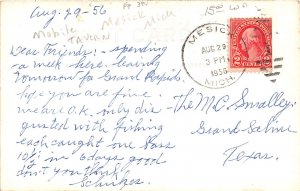 Aug-29-56
Mobile
Tavern
Mesick
Mich
MESICK
AUG 29
3 PM
1956
MICH.
Dear Friends:- spending
a week here leaving
tomorrow for Grand Rapids.
hope you are fine.
we are O.K. only dis-
gusted with fishing
each caught one Bass
10½ in 6 days good
don't you think
Schultzes
The M.C. Smalley.
Grand Saline
Texas.